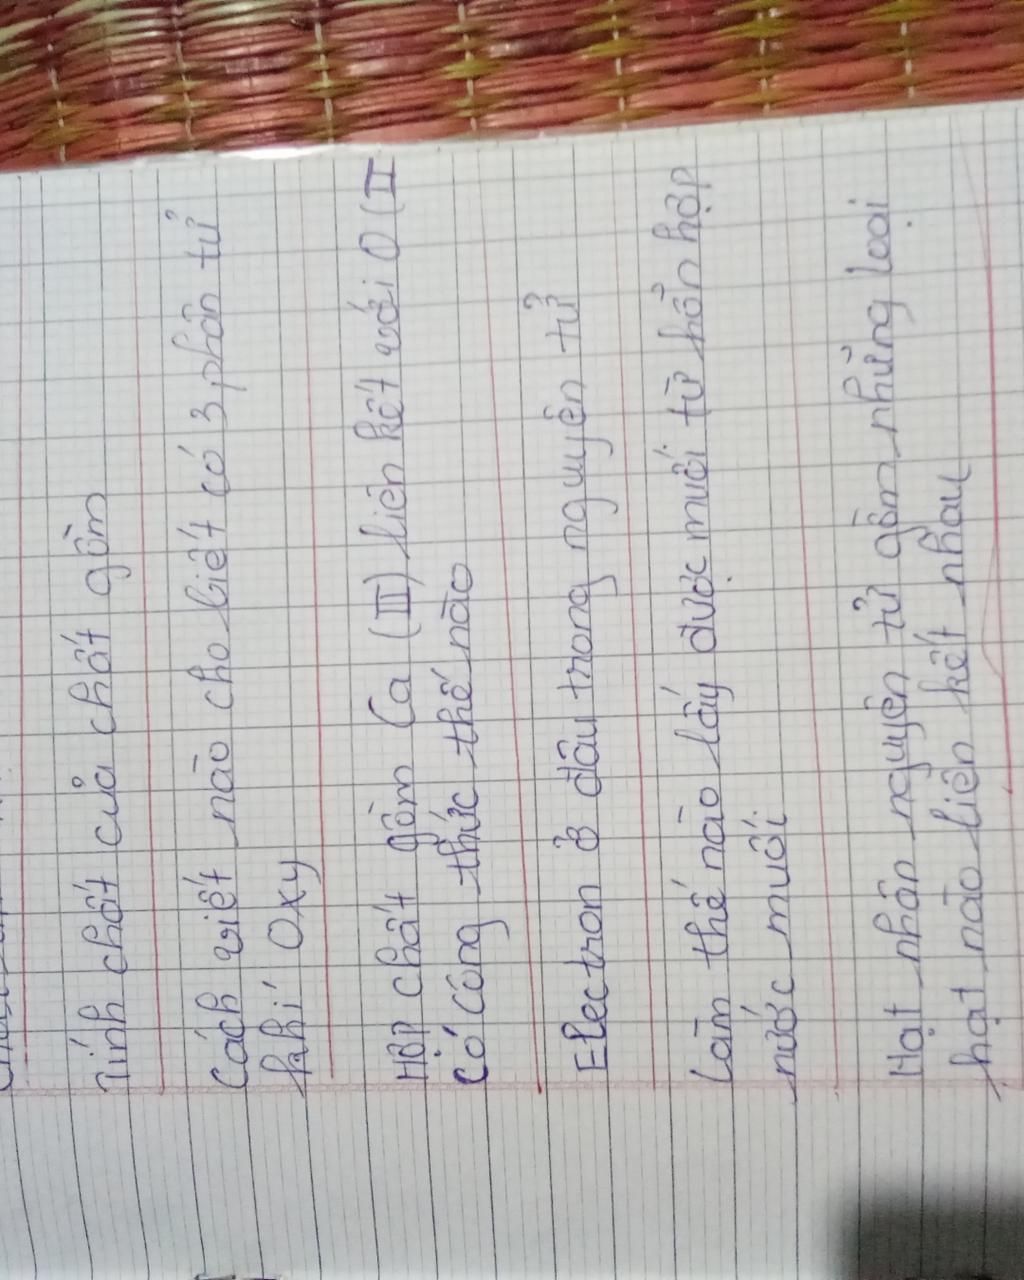 Tính chất của chất gồm
Cách viết nào cho biết có 3 phân tử
khí Oxy
Hợp chất gồm Ca (II) liên kết với O (II
có công thức thế nào
Electron ở đâu trong nguyên tử
Làm thế nào lấy được muối từ hỗn hợp
nước muối
Hạt nhân nguyên tử gồm những loại
hạt nào liên kết nhau